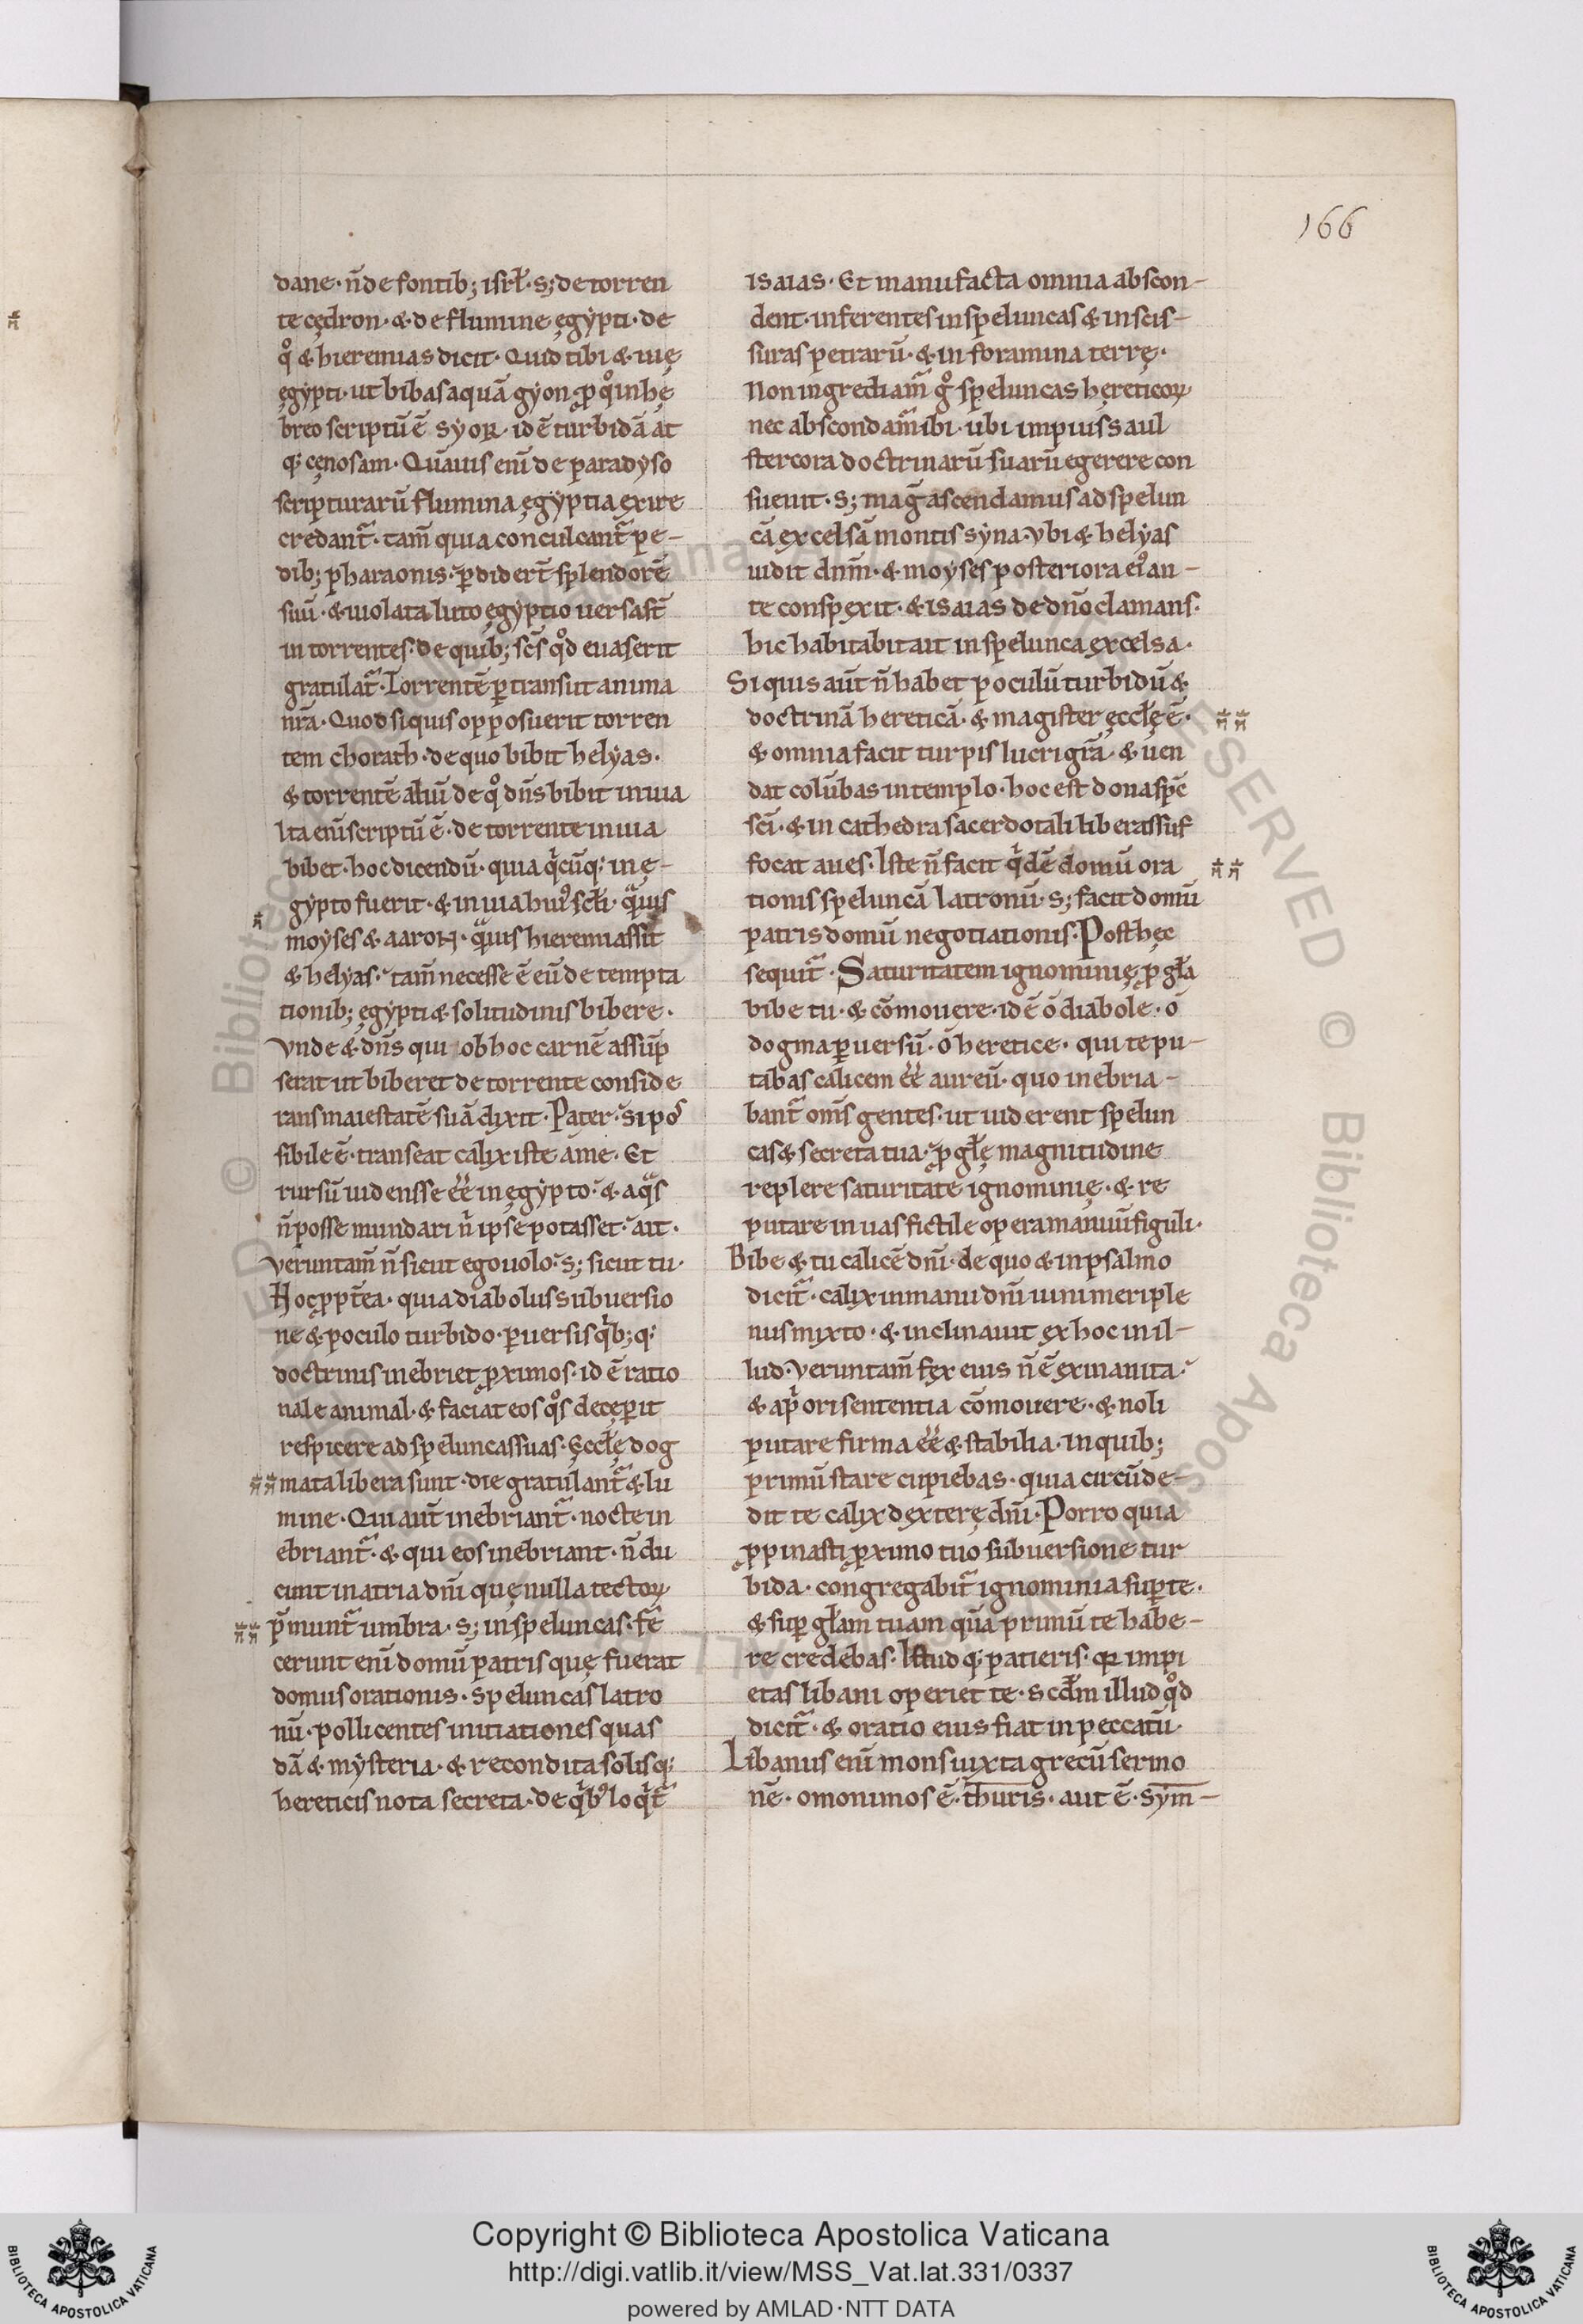 166
dane· n̄ de fontib; isrł· s; de torren
te cędron· & de flumine ęgypti· de
qͦ & hieremias dicit· Quid tibi & uię
ęgypti· ut bibas aquā gyon· ꝓ qͦ in hę
breo scriptū ē SYOR· id ē turbidā at
q; cęnosam· Quāuis eni̅ de paradyso
scripturarū flumina ęgyptia exire
credant᷑· tam̅ quia conculcant᷑ pe-
dib; pharaonis· ꝑdider̅t splendorē
suū· & uiolata luto ęgyptio uersa st̅
in torrentes· de quib; sc̅s qͦd euaserit
gratulat᷑· Torrentē ꝑtransiit anima
nr̅a· Quod si quis opposuerit torren
tem chorath· de quo bibit helyas·
& torrentē aliu̅ de qͦ dn̅s bibit in uia
Ita eni̅ scriptū ē· de torrente in uia
bibet· hoc dicendū· quia qicūq; in ę-
gypto fuerit· & in uia hui᷒ scłi· qᵃuis
moyses & aaron· qᵃuis hieremias sit
& helyas· tam̅ necesse ē eū de tempta
tionib; ęgypti & solitudinis bibere·
Vnde & dn̅s qui ob hoc carnē assūp
serat ut biberet de torrente conside
rans maiestatē suā dixit· Pater· si pos
sibile ē· transeat calix iste a me· Et
rursū uidens se ēē in ęgypto· & aqᵃs
n̄ posse mundari nⁱ ipse potasset· ait·
Veruntam̅ n̄ sicut ego uolo· s; sicut tu·
Hoc ꝓpt̅ea· quia diabolus subuersio
ne & poculo turbido· ꝑuersis qⁱb;q;
doctrinis inebriet ꝓximos· id ē ratio
nale animal· & faciat eos qͦs decęperit
respicere ad speluncas suas· Ęccłę dog
mata libera sunt· die gratulant᷑ & lu
mine· Qui aut̅ inebriant᷑· nocte in
ebriant᷑· & qui eos inebriant· n̄ du
cunt in atria dn̅i quę nulla tectoꝝ
p̅munt᷑ umbra· s; in speluncas· fe̅
cerunt eni̅ domū patris quę fuerat
domus orationis· speluncas latro
nū· pollicentes initiationes quas
dā & mysteria· & recondita solisq;
hereticis nota secreta· de qⁱb᷒ loqⁱt᷑
isaias· Et manufacta omnia abscon-
dent· inferentes in speluncas & in scis-
suras petrarū· & in foramina terrę·
Non ingrediam᷑ gͦ speluncas hęreticoꝝ
nec abscondam᷑ ibi· ubi impius saul
stercora doctrinarū suarū egerere con
sueuit· s; mag̅ ascendamus ad spelun
cā excelsā montis syna· Vbi & helyas
uidit dn̅m· & moyses posteriora ei᷒ an-
te conspexit· & isaias de dn̅o clamans·
hic habitabit ait in spelunca excelsa·
Si quis aut̅ n̄ habet poculū turbidū &
doctrinā hereticā· & magister ęccłę ē·
& omnia facit turpis lucri gr̅a· & uen
dat colūbas in templo· hoc est dona sp̅c
sc̅i· & in cathedra sacerdotali liberas suf
focat aues· Iste n̄ facit qⁱdē domū ora
tionis speluncā latronū· s; facit domū
patris domū negotiationis· Post hęc
sequit᷑· Saturitatem ignominię ꝓ głā
bibe tu· & cōmouere· id ē ō diabole· ō
dogma ꝑuersū· ō heretice· qui te pu-
tabas calicem ēē aureū· quo inebria-
bant᷑ om̅s gentes· ut uiderent spelun
cas & secreta tua· ꝓ głę magnitudine
replere saturitate ignominię· & re
putare in uas fictile opera manuū figuli·
Bibe & tu calicē dn̅i· de quo & in psalmo
dicit᷑· calix in manu dn̅i uini meri ple
nus mixto· & inclinauit ex hoc in il-
lud· Veruntam̅ fęx eius n̄ ē exinanita·
& a pⁱori sententia cōmouere· & noli
putare firma ēē & stabilia· in quib;
primū stare cupiebas· quia circūde-
dit te calix dexterę dn̅i· Porro quia
ꝓpinasti ꝓximo tuo subuersione tur
bida· congregabit᷑ ignominia suꝑ te·
& suꝑ głam tuam quā primū te habe-
re credebas· Istud q; patieris· qr impi
etas libani operiet te· scd̅m illud qͦd
dicit᷑· & oratio eius fiat in peccatū·
Libanus eni̅ mons iuxta grecū sermo
nē· omonimos ē· thuris· aut ē· sym-
Copyright © Biblioteca Apostolica Vaticana
http://digi.vatlib.it/view/MSS_Vat.lat.331/0337
powered by AMLAD·NTT DATA